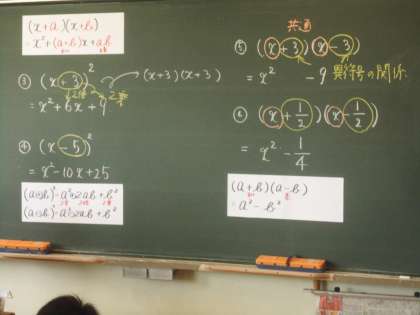 (x+a)(x+b)
=x²+(a+b)x+ab
③ (x+3)²
(x+3)(x+3)
2倍
2乗
=x²+6x+9
④ (x-5)²
=x²-10x+25
(a+b)²=a²+2ab+b²
(a-b)²=a²-2ab+b²
共通
⑤ (x+3)(x-3)
=x²-9
異符号の関係
⑥ (x+1/2)(x-1/2)
=x²-1/4
(a+b)(a-b)
=a²-b²